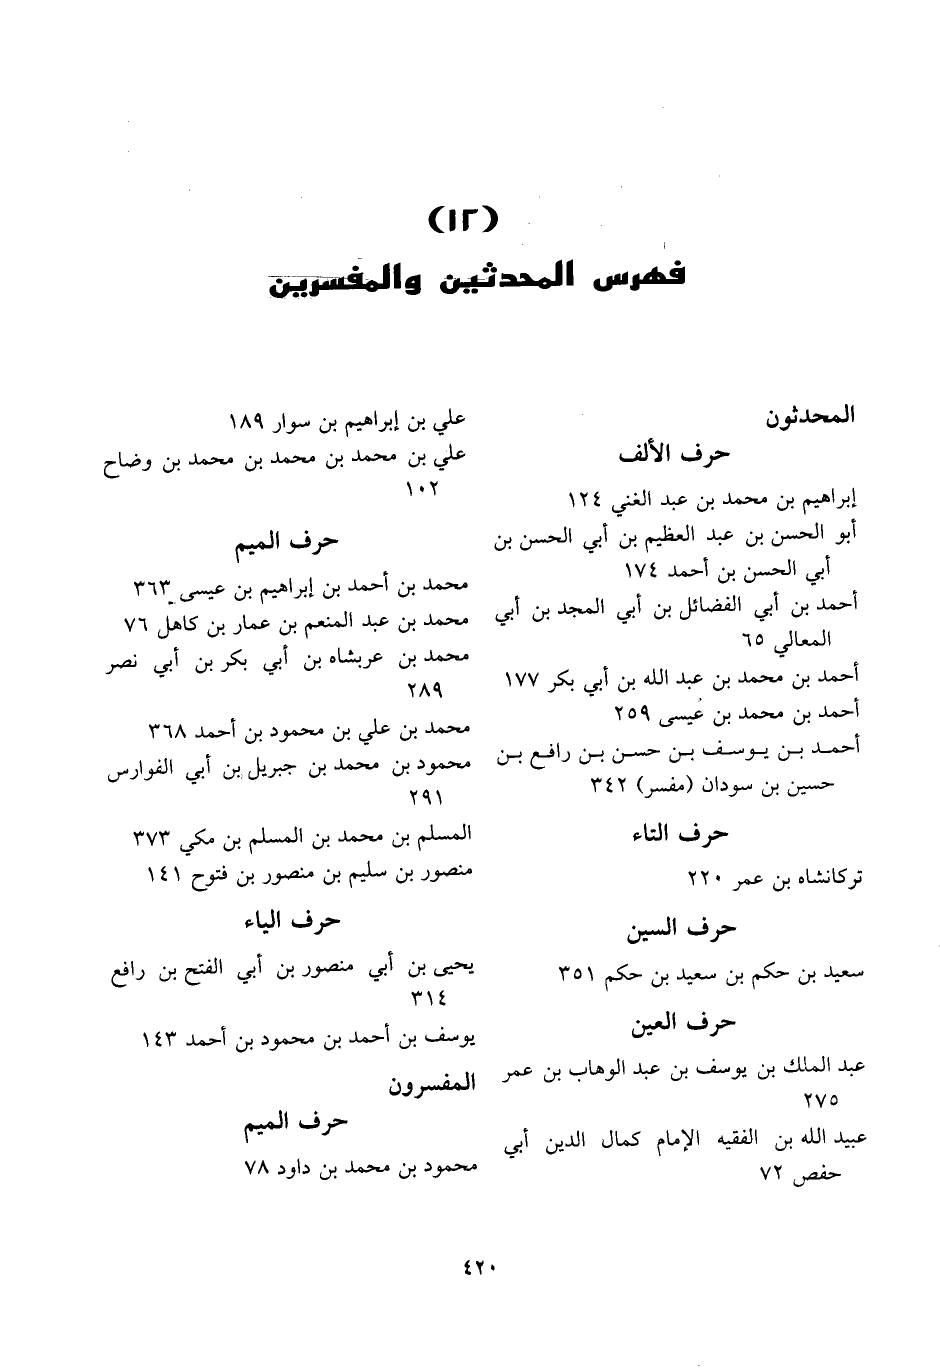 (١٢)
فهرس المحدثين والمفسرين
المحدثون
حرف الألف
إبراهيم بن محمد بن عبد الغني ١٢٤
أبو الحسن بن عبد العظيم بن أبي الحسن بن
أبي الحسن بن أحمد ١٧٤
أحمد بن أبي الفضائل بن أبي المجد بن أبي
المعالي ٦٥
أحمد بن محمد بن عبد الله بن أبي بكر ١٧٧
أحمد بن محمد بن عيسى ٢٥٩
أحمد بن يوسف بن حسن بن رافع بن
حسين بن سودان (مفسر) ٣٤٢
حرف التاء
تركانشاه بن عمر ٢٢٠
حرف السين
سعيد بن حكم بن سعيد بن حكم ٣٥١
حرف العين
عبد الملك بن يوسف بن عبد الوهاب بن عمر
٢٧٥
عبيد الله بن الفقيه الإمام كمال الدين أبي
حفص ٧٢
علي بن إبراهيم بن سوار ١٨٩
علي بن محمد بن محمد بن محمد بن وضاح
١٠٢
حرف الميم
محمد بن أحمد بن إبراهيم بن عيسى ٣٦٣
محمد بن عبد المنعم بن عمار بن كاهل ٧٦
محمد بن عربشاه بن أبي بكر بن أبي نصر
٢٨٩
محمد بن علي بن محمود بن أحمد ٣٦٨
محمود بن محمد بن جبريل بن أبي الفوارس
٢٩١
المسلم بن محمد بن المسلم بن مكي ٣٧٣
منصور بن سليم بن منصور بن فتوح ١٤١
حرف الياء
يحيى بن أبي منصور بن أبي الفتح بن رافع
٣١٤
يوسف بن أحمد بن محمود بن أحمد ١٤٣
المفسرون
حرف الميم
محمود بن محمد بن داود ٧٨
٤٢٠